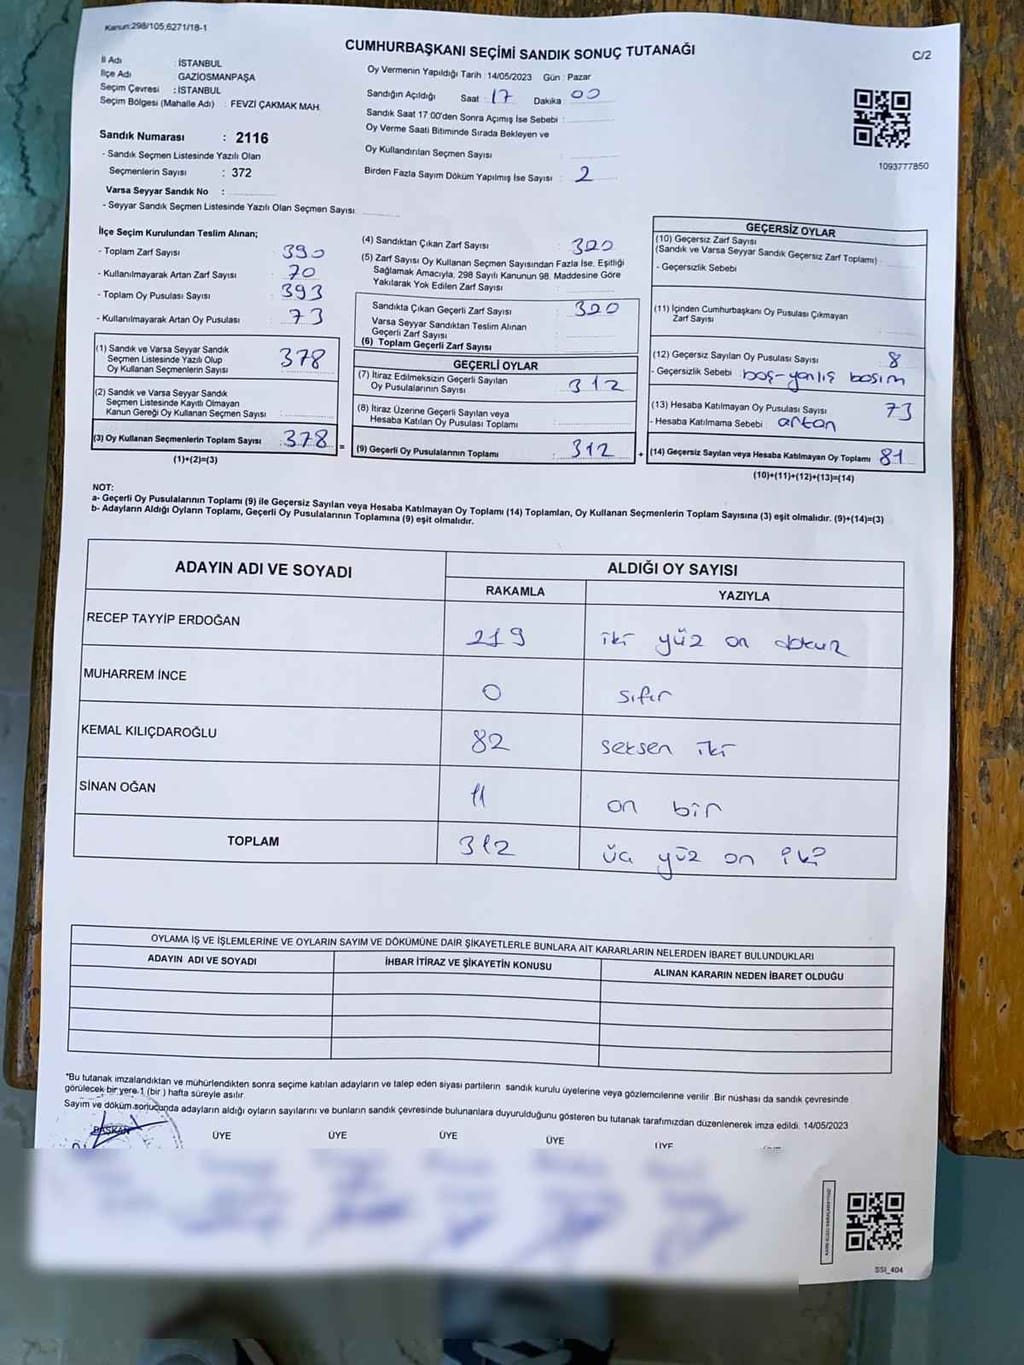 Kanun:298/105,6271/18-1
CUMHURBAŞKANI SEÇİMİ SANDIK SONUÇ TUTANAĞI
C/2
İl Adı : İSTANBUL
İlçe Adı : GAZİOSMANPAŞA
Seçim Çevresi : İSTANBUL
Seçim Bölgesi (Mahalle Adı) : FEVZİ ÇAKMAK MAH.
Sandık Numarası : 2116
- Sandık Seçmen Listesinde Yazılı Olan
Seçmenlerin Sayısı : 372
Varsa Seyyar Sandık No :
- Seyyar Sandık Seçmen Listesinde Yazılı Olan Seçmen Sayısı
Oy Vermenin Yapıldığı Tarih : 14/05/2023 Gün : Pazar
Sandığın Açıldığı Saat : 17 Dakika : 00
Sandık Saat 17:00'den Sonra Açımış İse Sebebi :
Oy Verme Saati Bitiminde Sırada Bekleyen ve
Oy Kullandırılan Seçmen Sayısı :
Birden Fazla Sayım Döküm Yapılmış İse Sayısı : 2
1093777850
İlçe Seçim Kurulundan Teslim Alınan;
- Toplam Zarf Sayısı : 390
- Kullanılmayarak Artan Zarf Sayısı : 70
- Toplam Oy Pusulası Sayısı : 393
- Kullanılmayarak Artan Oy Pusulası : 73
(1) Sandık ve Varsa Seyyar Sandık
Seçmen Listesinde Yazılı Olup
Oy Kullanan Seçmenlerin Sayısı : 378
(2) Sandık ve Varsa Seyyar Sandık
Seçmen Listesinde Kayıtlı Olmayan
Kanun Gereği Oy Kullanan Seçmen Sayısı :
(3) Oy Kullanan Seçmenlerin Toplam Sayısı : 378
(1)+(2)=(3)
(4) Sandıktan Çıkan Zarf Sayısı : 320
(5) Zarf Sayısı Oy Kullanan Seçmen Sayısından Fazla İse, Eşitliği
Sağlamak Amacıyla, 298 Sayılı Kanunun 98. Maddesine Göre
Yakılarak Yok Edilen Zarf Sayısı :
Sandıkta Çıkan Geçerli Zarf Sayısı : 320
Varsa Seyyar Sandıktan Teslim Alınan
Geçerli Zarf Sayısı :
(6) Toplam Geçerli Zarf Sayısı
GEÇERLİ OYLAR
(7) İtiraz Edilmeksizin Geçerli Sayılan
Oy Pusulalarının Sayısı : 312
(8) İtiraz Üzerine Geçerli Sayılan veya
Hesaba Katılan Oy Pusulası Toplamı :
= (9) Geçerli Oy Pusulalarının Toplamı : 312
GEÇERSİZ OYLAR
(10) Geçersiz Zarf Sayısı
(Sandık ve Varsa Seyyar Sandık Geçersiz Zarf Toplamı) :
- Geçersizlik Sebebi
(11) İçinden Cumhurbaşkanı Oy Pusulası Çıkmayan
Zarf Sayısı
(12) Geçersiz Sayılan Oy Pusulası Sayısı : 8
- Geçersizlik Sebebi boş-yanlış basım
(13) Hesaba Katılmayan Oy Pusulası Sayısı : 73
- Hesaba Katılmama Sebebi artan
+ (14) Geçersiz Sayılan veya Hesaba Katılmayan Oy Toplamı : 81
(10)+(11)+(12)+(13)=(14)
NOT:
a- Geçerli Oy Pusulalarının Toplamı (9) ile Geçersiz Sayılan veya Hesaba Katılmayan Oy Toplamı (14) Toplamları, Oy Kullanan Seçmenlerin Toplam Sayısına (3) eşit olmalıdır. (9)+(14)=(3)
b- Adayların Aldığı Oyların Toplamı, Geçerli Oy Pusulalarının Toplamına (9) eşit olmalıdır.
ADAYIN ADI VE SOYADI
ALDIĞI OY SAYISI
RAKAMLA YAZIYLA
RECEP TAYYİP ERDOĞAN 219 iki yüz on dokuz
MUHARREM İNCE 0 sıfır
KEMAL KILIÇDAROĞLU 82 seksen iki
SİNAN OĞAN 11 on bir
TOPLAM 312 üç yüz on iki
OYLAMA İŞ VE İŞLEMLERİNE VE OYLARIN SAYIM VE DÖKÜMÜNE DAİR ŞİKAYETLERLE BUNLARA AİT KARARLARIN NELERDEN İBARET BULUNDUKLARI
ADAYIN ADI VE SOYADI İHBAR İTİRAZ VE ŞİKAYETİN KONUSU ALINAN KARARIN NEDEN İBARET OLDUĞU
*Bu tutanak imzalandıktan ve mühürlendikten sonra seçime katılan adayların ve talep eden siyasi partilerin sandık kurulu üyelerine veya gözlemcilerine verilir. Bir nüshası da sandık çevresinde
görülecek bir yere 1 (bir) hafta süreyle asılır.
Sayım ve döküm sonucunda adayların aldığı oyların sayılarını ve bunların sandık çevresinde bulunanlara duyurulduğunu gösteren bu tutanak tarafımızdan düzenlenerek imza edildi. 14/05/2023
BAŞKAN ÜYE ÜYE ÜYE ÜYE ÜYE
SSI_404